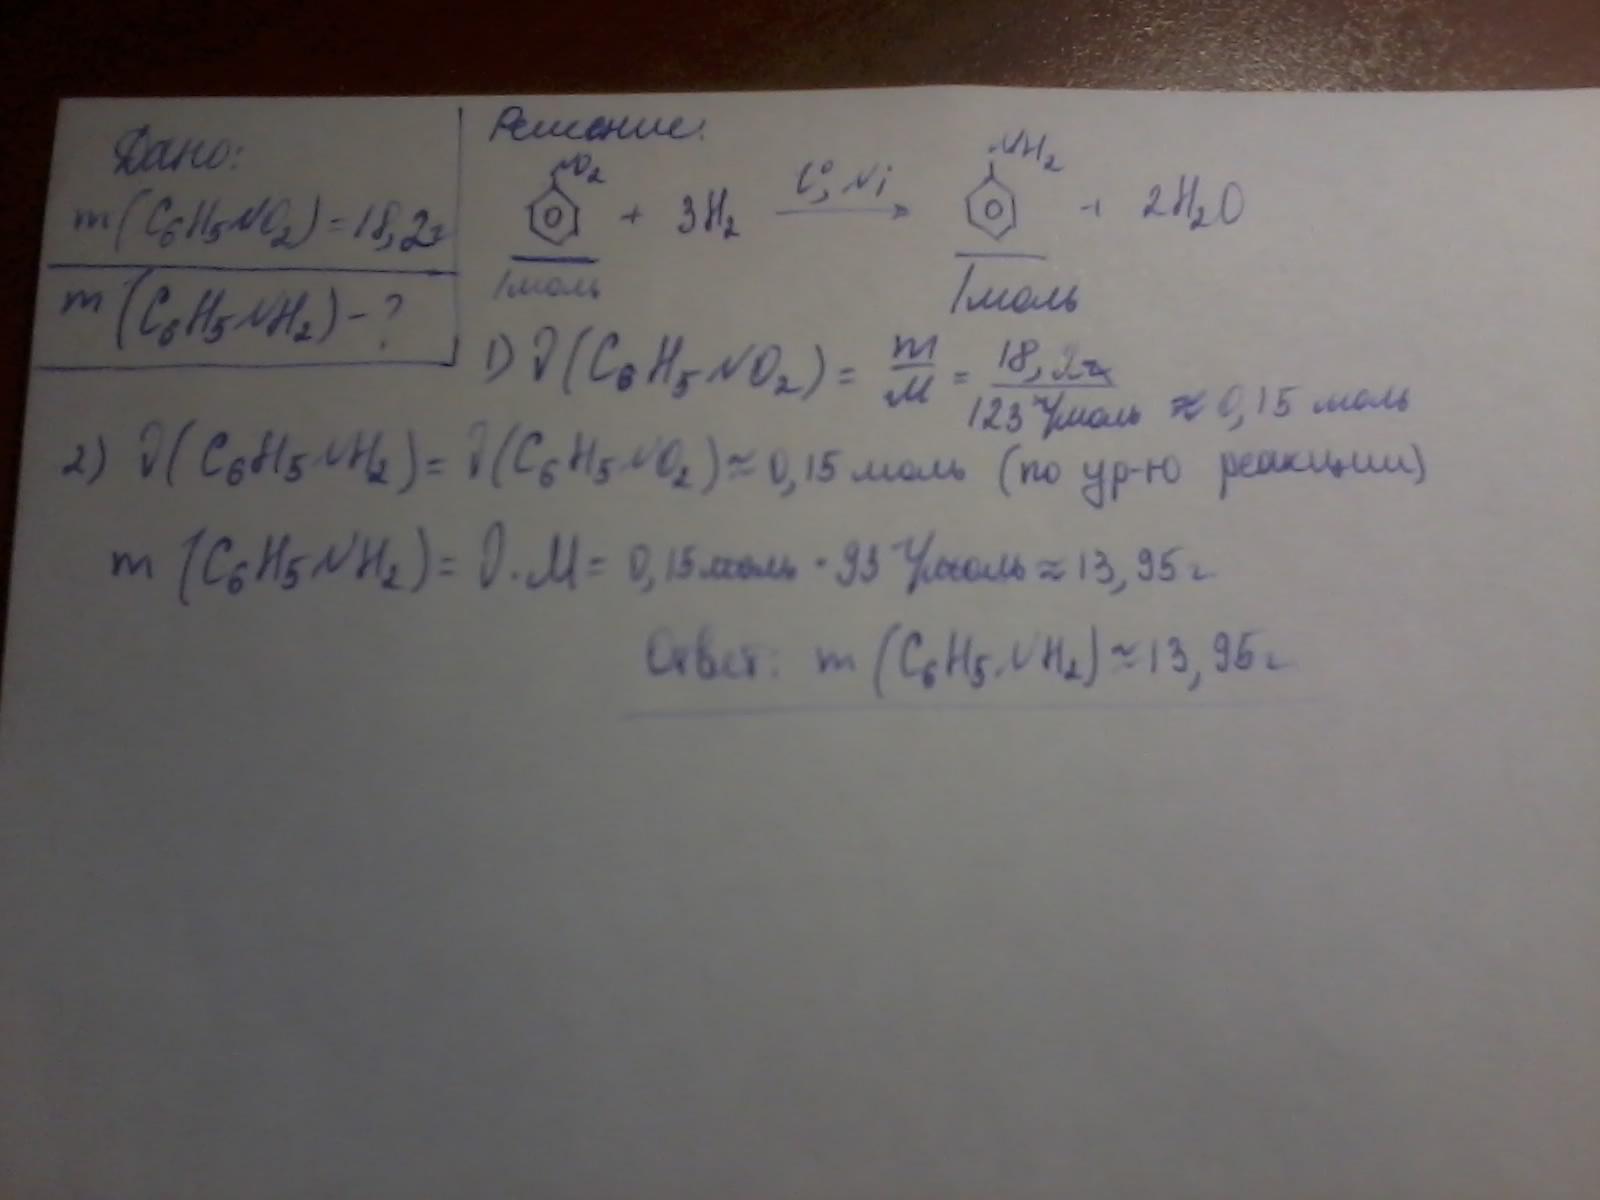 Дано:
m(C₆H₅NO₂)=18,2г
m(C₆H₅NH₂)-?
Решение:
NO₂ + 3H₂ t°, Ni → NH₂ + 2H₂O
1моль 1моль
1) ν(C₆H₅NO₂) = m/M = 18,2г/123 г/моль ≈ 0,15 моль
2) ν(C₆H₅NH₂) = ν(C₆H₅NO₂) ≈ 0,15 моль (по ур-ю реакции)
m(C₆H₅NH₂) = ν·M = 0,15 моль · 93 г/моль ≈ 13,95 г
Ответ: m(C₆H₅NH₂) ≈ 13,95 г